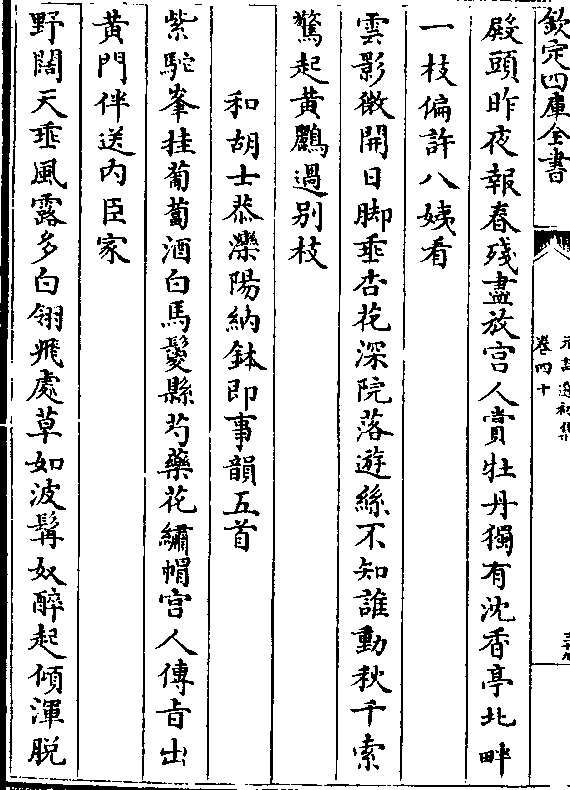 欽定四庫全書
元詩選初集
卷四十
殿頭昨夜報春殘盡放宫人賞牡丹獨有沈香亭北畔
一枝偏許八姨看
雲影微開日脚垂杏花深院落遊絲不知誰動秋千索
驚起黄鸝過别枝
和胡士恭灤陽納鉢即事韻五首
紫駝峯挂葡萄酒白馬鬉懸芍藥花繡帽宫人傳旨出
黄門伴送内臣家
野闊天垂風露多白翎飛處草如波髯奴醉起傾渾脱